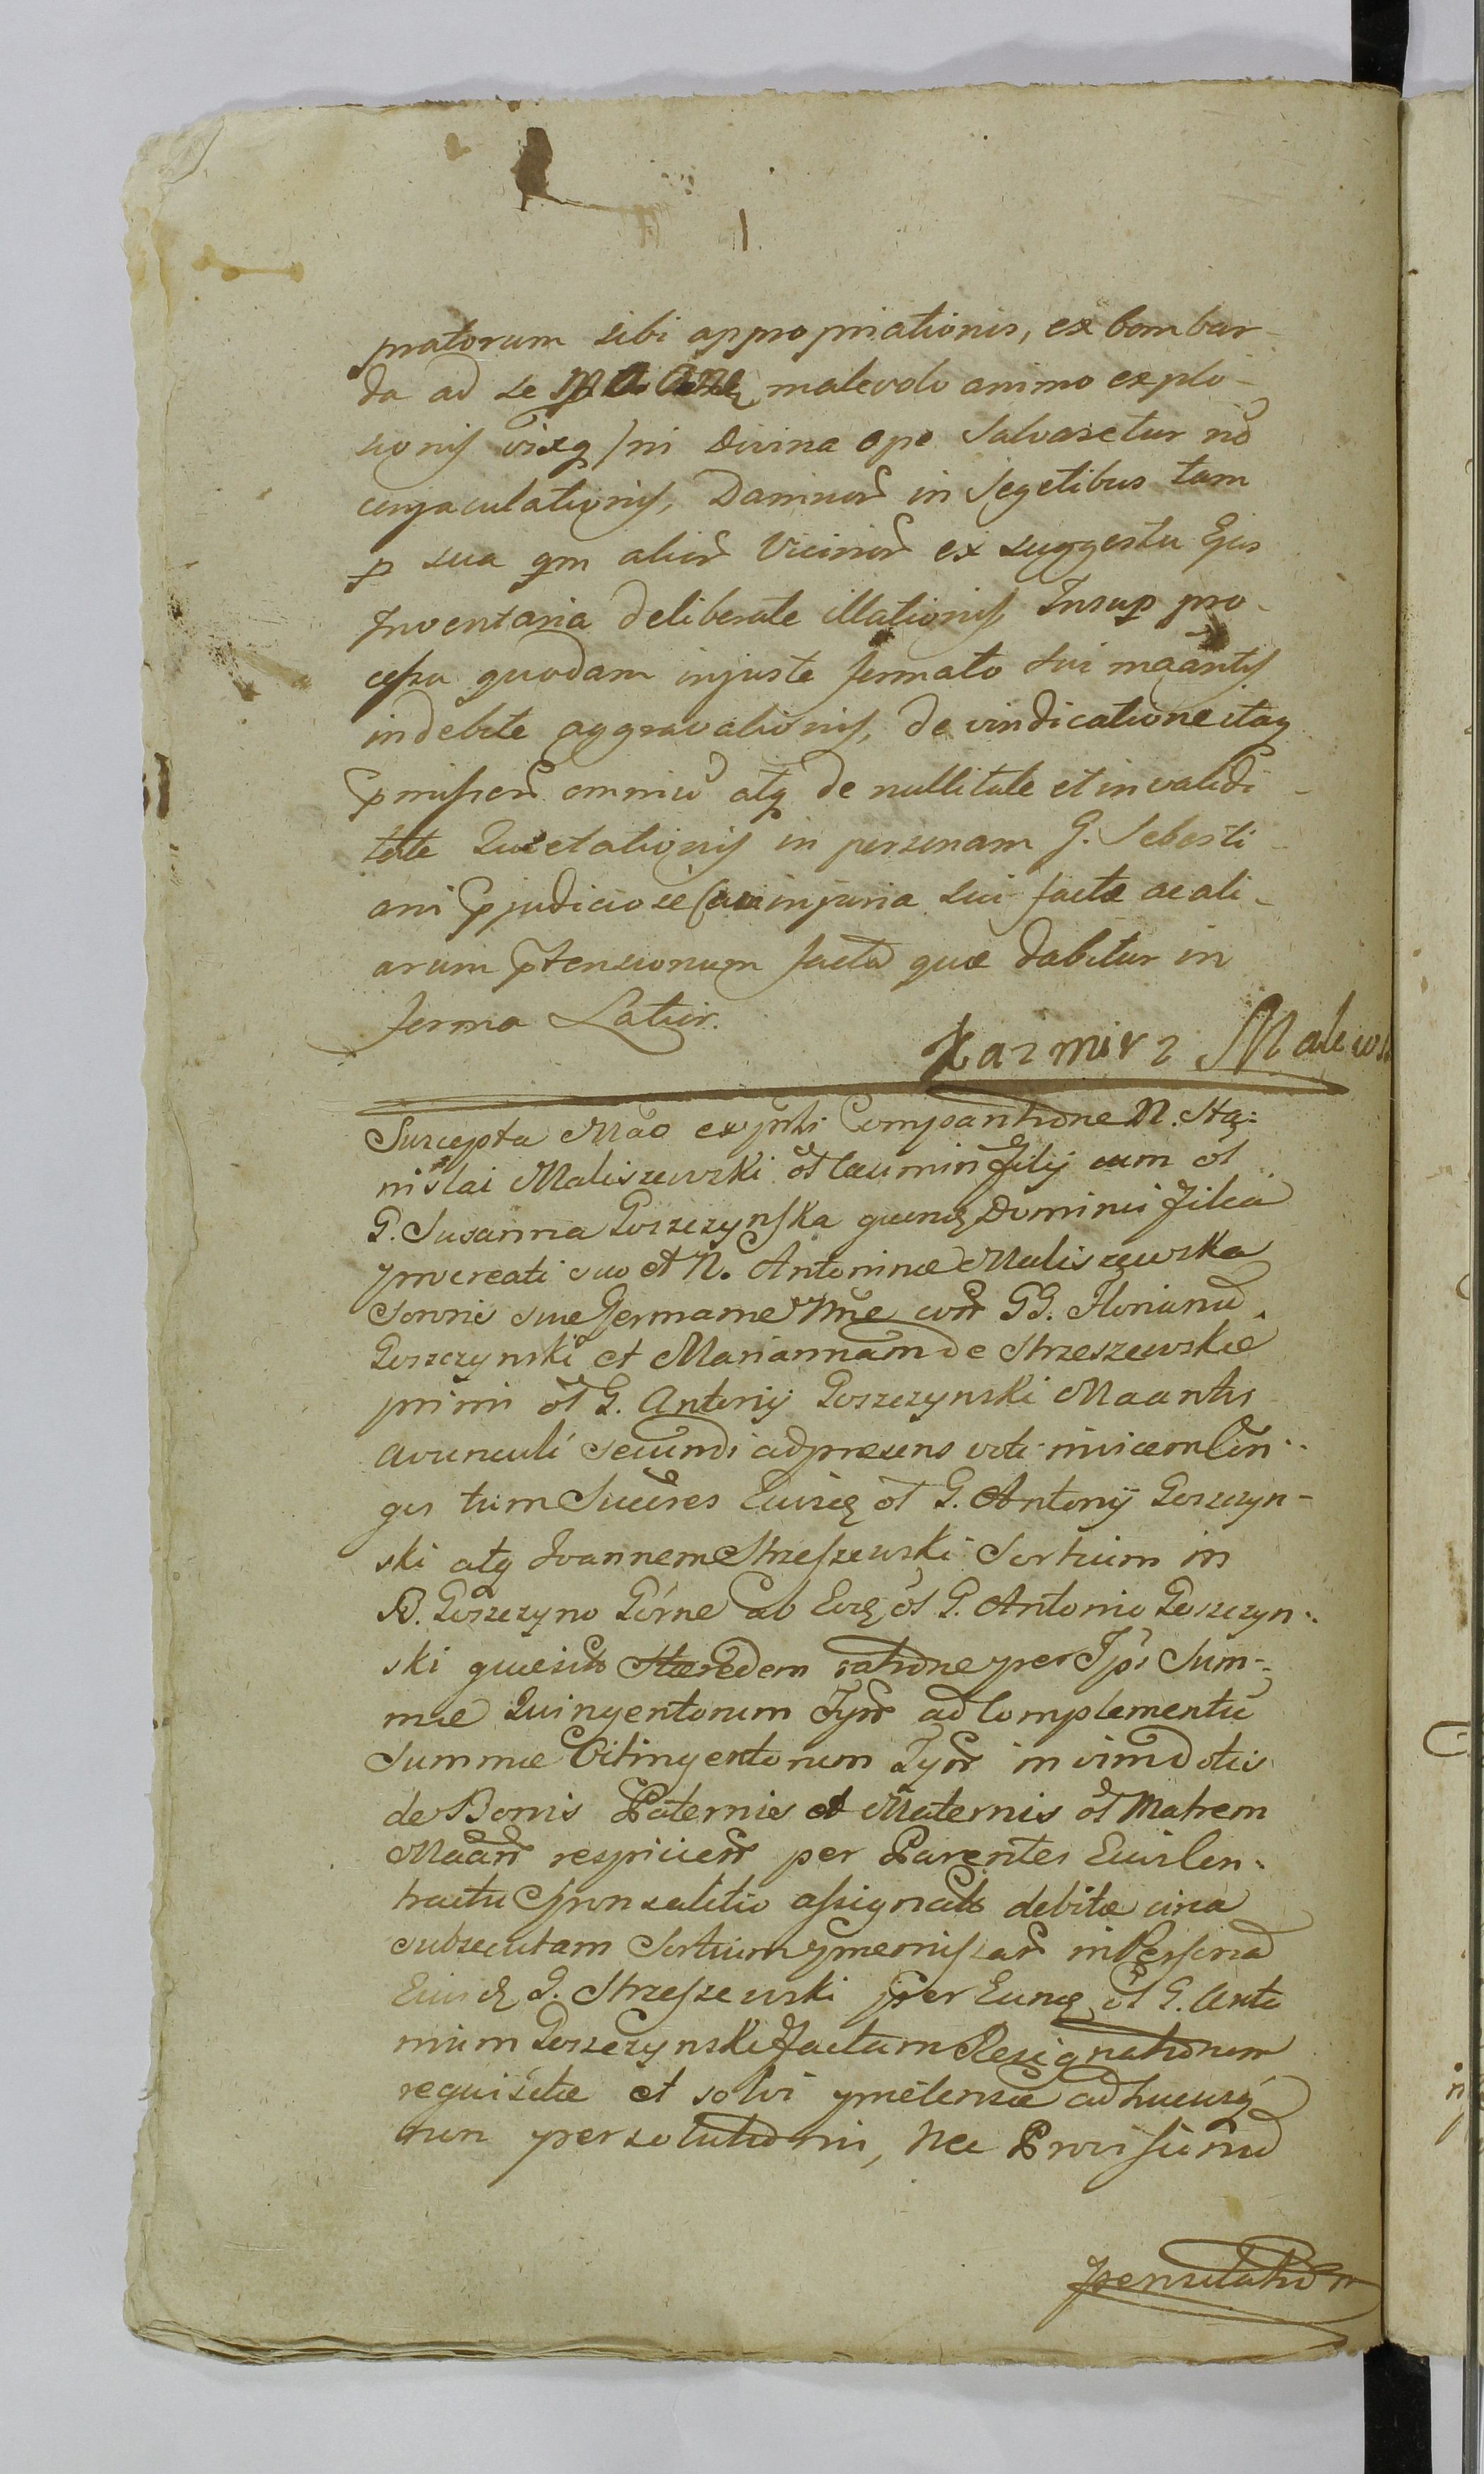 pratorum sibi appropriationis, ex bombar-
da ad se malevolo animo explo-
sionis vixq ni Divina ope Salvaretur no
conjaculationis, Damnor in Segetibus tam
p sua qm alior Vicinor ex suggestu Ejus
Inventaria deliberate illationis, Insup pro-
cessu quodam injuste formato sui maantis
indebite aggravationis, de vindicatione itaq
pmissor omniu atq de nullitate et invalidi-
tate Quietationis in personam G. Sebasti-
ani pjudiciose injuria sui factæ ac ali-
arum ptensionum facta quæ dabitur in
forma Latior.
Kazmirz Malews
Suscepta Mao ex Comparitione N. Sta:
nislai Maliszewski Filij cum ol
G. Susanna Goszczynska Domini Filia
procreati suo et N. Antoninæ Maliszewska
Sororis suæ Germanæ nne con GG. Florianu
Goszczynski et Mariannam de Strzeszewskie
primi ol G. Antonij Goszczynski Maantis
avunculi secundi ad præsens voti invicem Con-
ges tum Succres ol G. Antonij Goszczyn-
ski atq Joannem Strzeszewski Sortium in
B. Goszczyno Górne ab ol G. Antonio Goszczyn-
ski quæsit Hæredem ratione per Ipos Sum-
mæ Quingentorum Tynf ad Complementu
Summæ Octingentorum Tynf in vim dotis
de Bonis Paternis et Maternis ol Matrem
Maan respicien per Parentes
tractu Sponsalitio assignat debitæ circa
subsecutam Sortium præmissar in Persona
G. Strzeszewski per ol G. Anto
nium Goszczynski factam Resignationem
requisitæ et solvi adhucusq
non persolutionis, nec Provisionu
pensitation